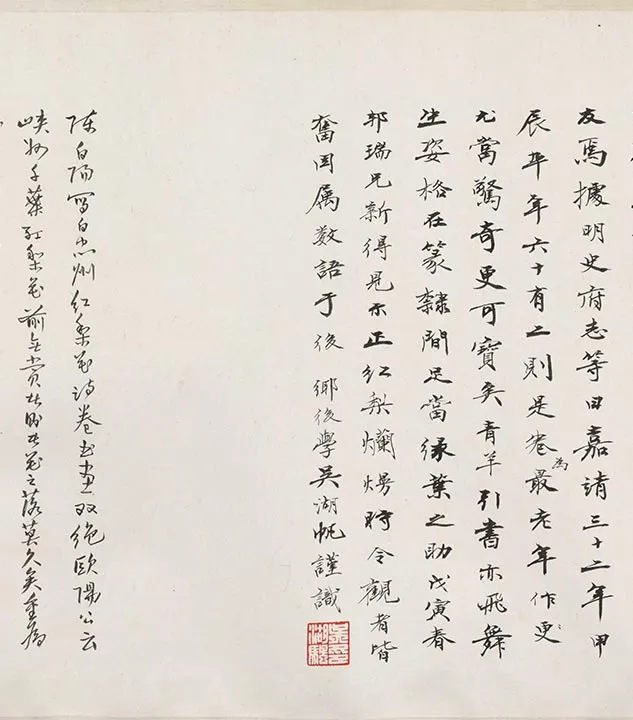 友焉據明史府志等曰嘉靖三十二年甲
辰卒年六十有二則是卷為最老年作更
尤當驚奇更可寶矣青羊引書亦飛舞
生姿格在篆隸間足當綠葉之助戊寅春
邦瑞兄新得見示正紅梨爛熳時令觀者皆
奮因屬數語于後 鄉後學吳湖帆謹識
陳白陽寫白忠州紅梨花詩卷書畫双絕歐陽公云
峽州千葉紅梨花前無賞者則此花之落莫久矣重為